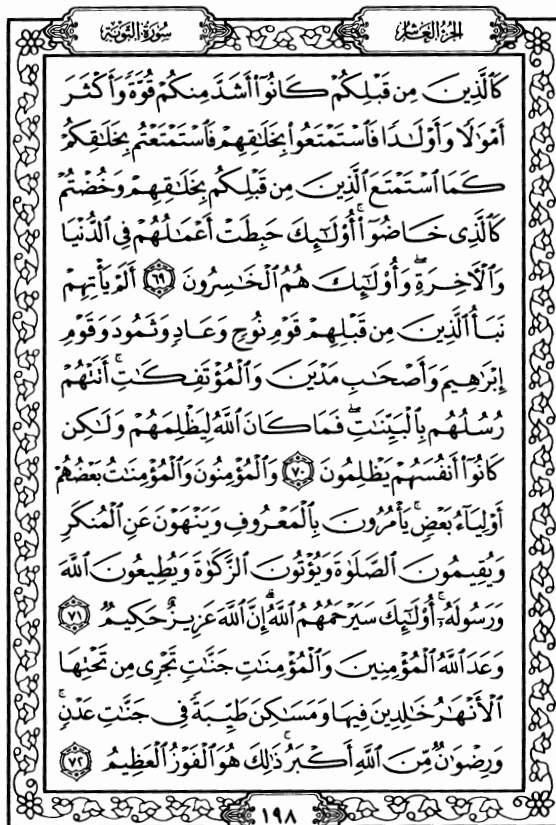 سُورَةُ التَّوْبَةِ
الجُزْءُ العَاشِرُ
كَٱلَّذِينَ مِن قَبۡلِكُمۡ كَانُوٓاْ أَشَدَّ مِنكُمۡ قُوَّةٗ وَأَكۡثَرَ
أَمۡوَٰلٗا وَأَوۡلَٰدٗا فَٱسۡتَمۡتَعُواْ بِخَلَٰقِهِمۡ فَٱسۡتَمۡتَعۡتُم بِخَلَٰقِكُمۡ
كَمَا ٱسۡتَمۡتَعَ ٱلَّذِينَ مِن قَبۡلِكُم بِخَلَٰقِهِمۡ وَخُضۡتُمۡ
كَٱلَّذِي خَاضُوٓاْۚ أُوْلَٰٓئِكَ حَبِطَتۡ أَعۡمَٰلُهُمۡ فِي ٱلدُّنۡيَا
وَٱلۡأٓخِرَةِۖ وَأُوْلَٰٓئِكَ هُمُ ٱلۡخَٰسِرُونَ ٦٩ أَلَمۡ يَأۡتِهِمۡ
نَبَأُ ٱلَّذِينَ مِن قَبۡلِهِمۡ قَوۡمِ نُوحٖ وَعَادٖ وَثَمُودَ وَقَوۡمِ
إِبۡرَٰهِيمَ وَأَصۡحَٰبِ مَدۡيَنَ وَٱلۡمُؤۡتَفِكَٰتِۚ أَتَتۡهُمۡ
رُسُلُهُم بِٱلۡبَيِّنَٰتِۖ فَمَا كَانَ ٱللَّهُ لِيَظۡلِمَهُمۡ وَلَٰكِن
كَانُوٓاْ أَنفُسَهُمۡ يَظۡلِمُونَ ٧٠ وَٱلۡمُؤۡمِنُونَ وَٱلۡمُؤۡمِنَٰتُ بَعۡضُهُمۡ
أَوۡلِيَآءُ بَعۡضٖۚ يَأۡمُرُونَ بِٱلۡمَعۡرُوفِ وَيَنۡهَوۡنَ عَنِ ٱلۡمُنكَرِ
وَيُقِيمُونَ ٱلصَّلَوٰةَ وَيُؤۡتُونَ ٱلزَّكَوٰةَ وَيُطِيعُونَ ٱللَّهَ
وَرَسُولَهُۥٓۚ أُوْلَٰٓئِكَ سَيَرۡحَمُهُمُ ٱللَّهُۗ إِنَّ ٱللَّهَ عَزِيزٌ حَكِيمٞ ٧١
وَعَدَ ٱللَّهُ ٱلۡمُؤۡمِنِينَ وَٱلۡمُؤۡمِنَٰتِ جَنَّٰتٖ تَجۡرِي مِن تَحۡتِهَا
ٱلۡأَنۡهَٰرُ خَٰلِدِينَ فِيهَا وَمَسَٰكِنَ طَيِّبَةٗ فِي جَنَّٰتِ عَدۡنٖۚ
وَرِضۡوَٰنٞ مِّنَ ٱللَّهِ أَكۡبَرُۚ ذَٰلِكَ هُوَ ٱلۡفَوۡزُ ٱلۡعَظِيمُ ٧٢
١٩٨